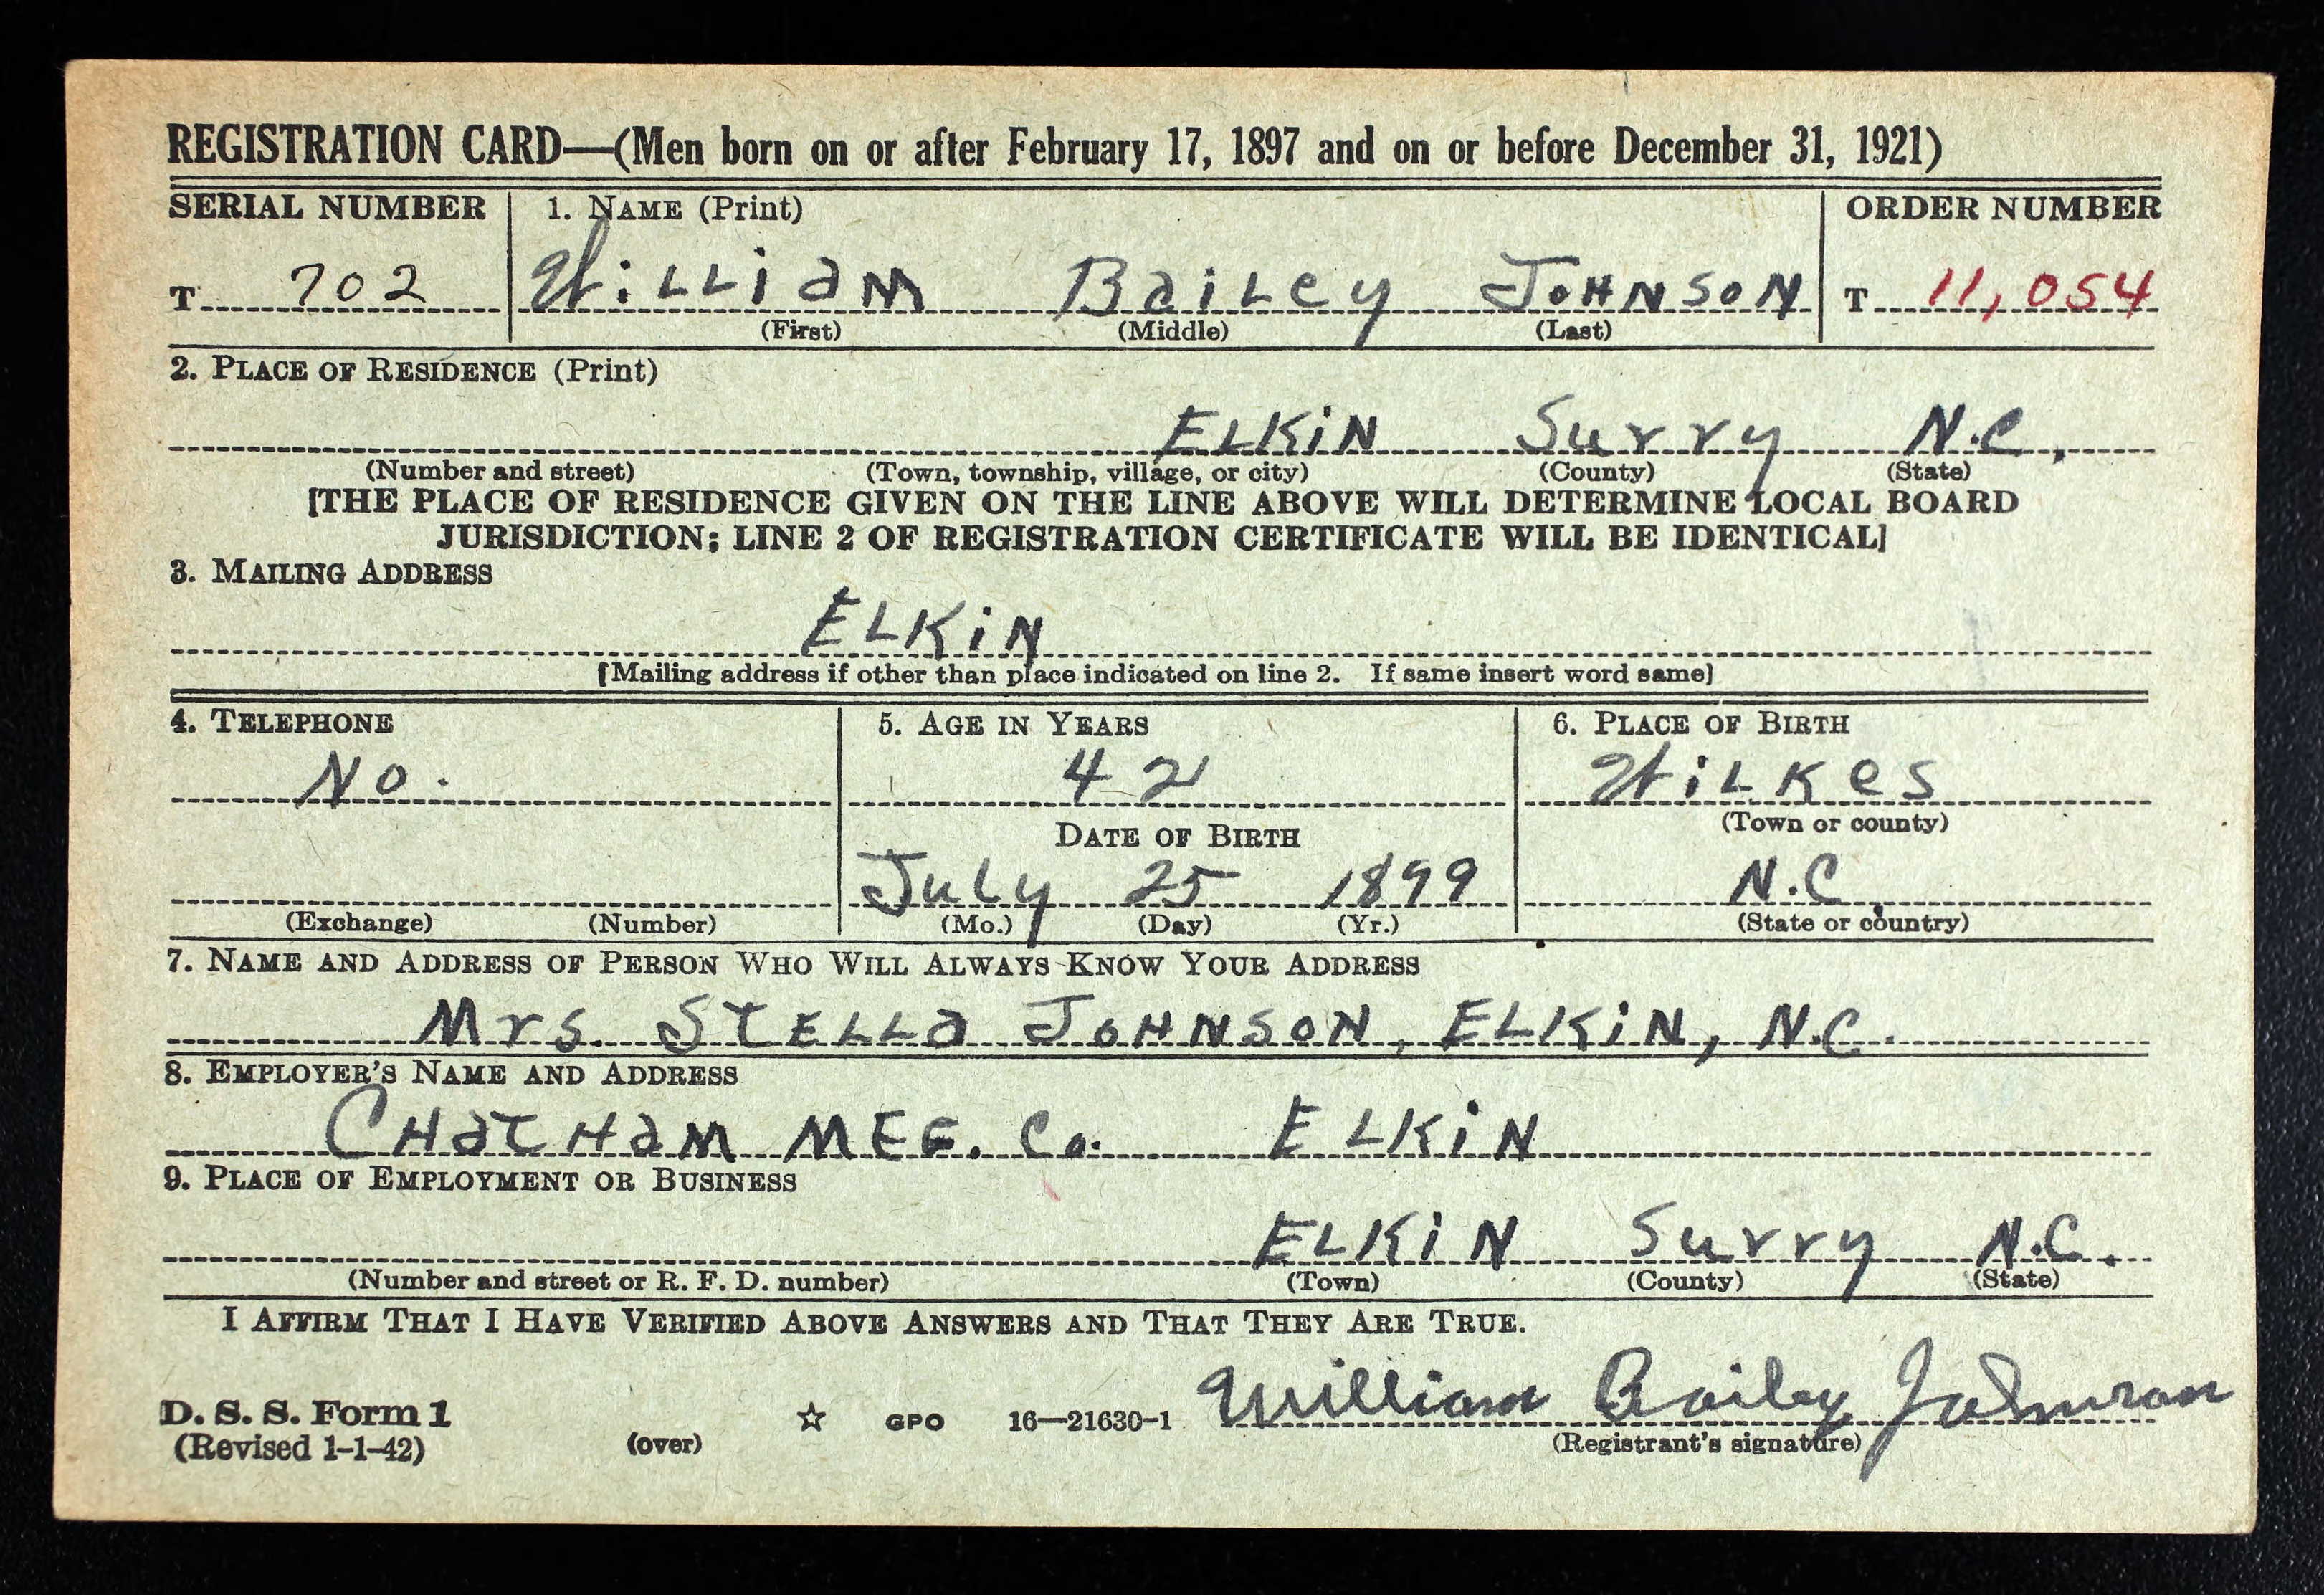 REGISTRATION CARD—(Men born on or after February 17, 1897 and on or before December 31, 1921)
SERIAL NUMBER 1. NAME (Print) ORDER NUMBER
T 702 William Bailey Johnson T 11,054
(First) (Middle) (Last)
2. PLACE OF RESIDENCE (Print)
ELKIN Surry N.C.
(Number and street) (Town, township, village, or city) (County) (State)
[THE PLACE OF RESIDENCE GIVEN ON THE LINE ABOVE WILL DETERMINE LOCAL BOARD
JURISDICTION; LINE 2 OF REGISTRATION CERTIFICATE WILL BE IDENTICAL]
3. MAILING ADDRESS
ELKIN
[Mailing address if other than place indicated on line 2. If same insert word same]
4. TELEPHONE 5. AGE IN YEARS 6. PLACE OF BIRTH
No. 42 Wilkes
(Town or county)
DATE OF BIRTH
July 25 1899 N.C.
(Exchange) (Number) (Mo.) (Day) (Yr.) (State or country)
7. NAME AND ADDRESS OF PERSON WHO WILL ALWAYS KNOW YOUR ADDRESS
Mrs. STELLA JOHNSON, ELKIN, N.C.
8. EMPLOYER'S NAME AND ADDRESS
CHATHAM MFG. Co. ELKIN
9. PLACE OF EMPLOYMENT OR BUSINESS
ELKIN Surry N.C.
(Number and street or R. F. D. number) (Town) (County) (State)
I AFFIRM THAT I HAVE VERIFIED ABOVE ANSWERS AND THAT THEY ARE TRUE.
William Bailey Johnson
D. S. S. Form 1 GPO 16—21630-1
(Revised 1-1-42) (over) (Registrant's signature)